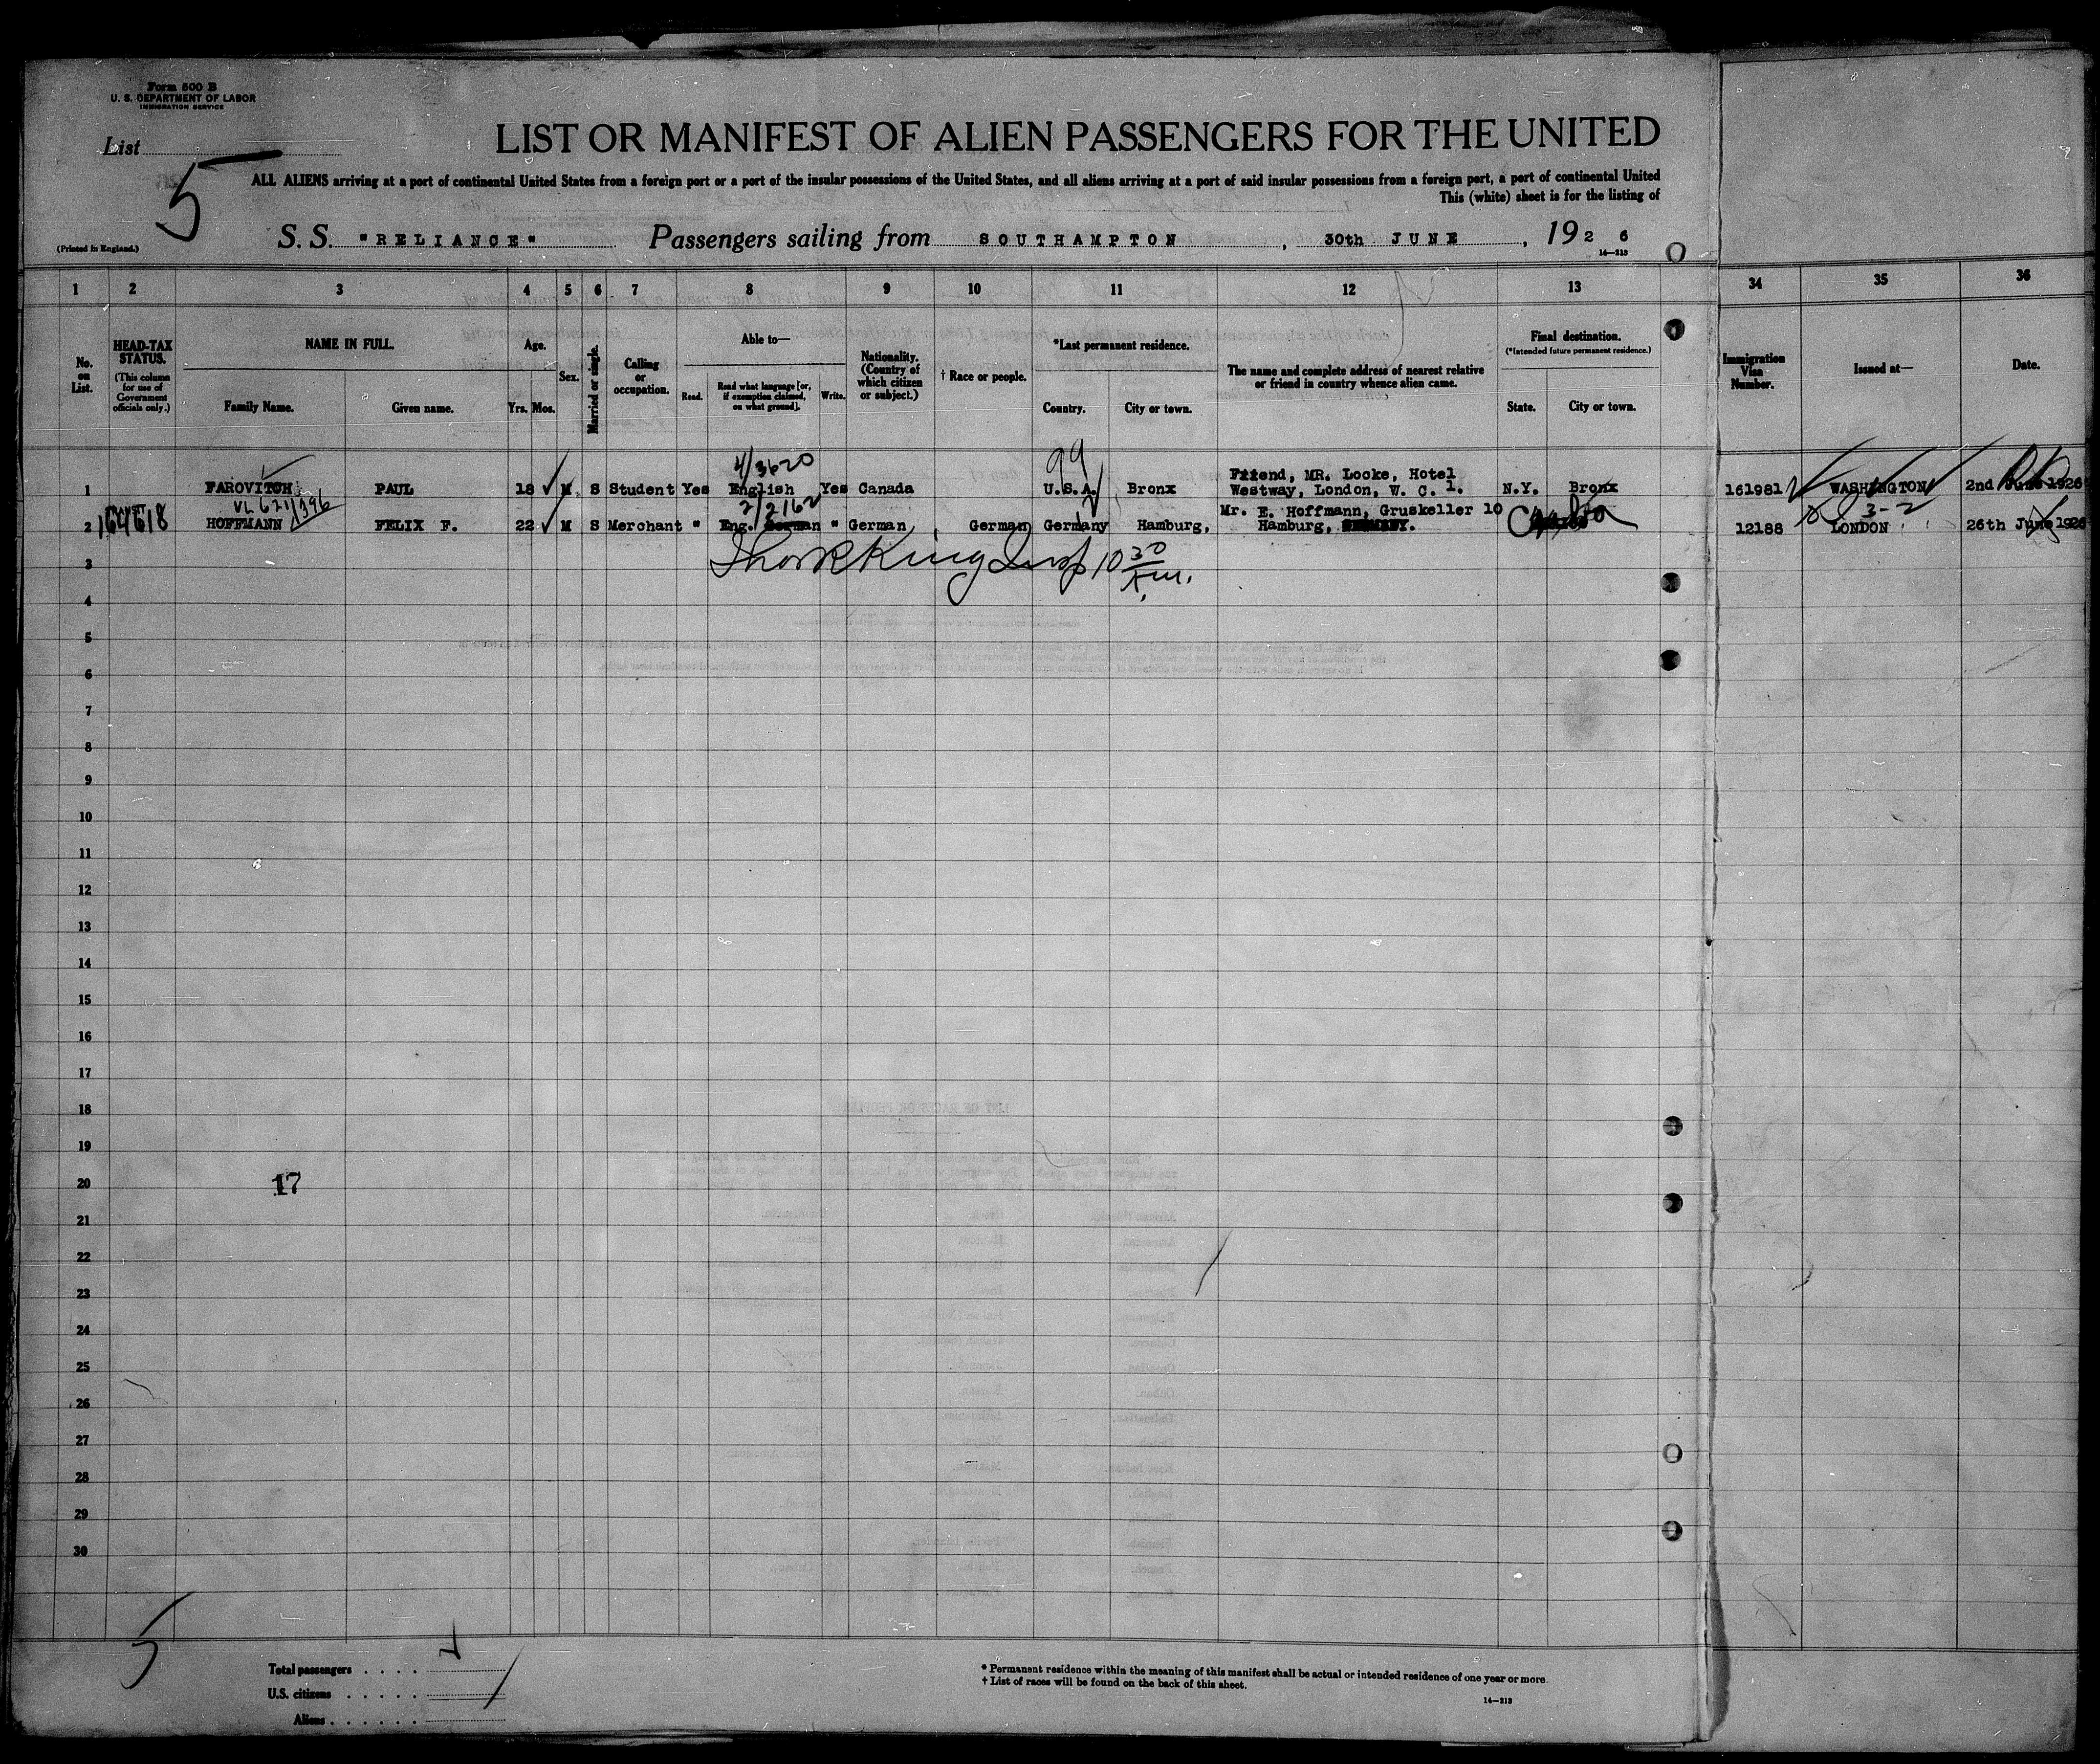 Form 500 B
U. S. DEPARTMENT OF LABOR
IMMIGRATION SERVICE
List
5
LIST OR MANIFEST OF ALIEN PASSENGERS FOR THE UNITED
ALL ALIENS arriving at a port of continental United States from a foreign port or a port of the insular possessions of the United States, and all aliens arriving at a port of said insular possessions from a foreign port, a port of continental United
This (white) sheet is for the listing of
(Printed in England.)
S. S. "RELIANCE" Passengers sailing from SOUTHAMPTON, 30th JUNE, 1926
14—213
1 2 3 4 5 6 7 8 9 10 11 12 13 34 35 36
No. on List.
HEAD-TAX STATUS.
(This column for use of Government officials only.)
NAME IN FULL.
Family Name. Given name.
Age.
Yrs. Mos.
Sex.
Married or single.
Calling or occupation.
Able to—
Read. Read what language [or, if exemption claimed, on what ground]. Write.
Nationality. (Country of which citizen or subject.)
† Race or people.
*Last permanent residence.
Country. City or town.
The name and complete address of nearest relative or friend in country whence alien came.
Final destination.
(*Intended future permanent residence.)
State. City or town.
Immigration Visa Number.
Issued at—
Date.
4/3620 99
1 FAROVITCH PAUL 18 M S Student Yes English Yes Canada U.S.A. Bronx Friend, MR. Locke, Hotel Westway, London, W. C. 1. N.Y. Bronx 161981 WASHINGTON 2nd June 1926
VL 621/396 2/2162 3-2
2 HOFFMANN FELIX F. 22 M S Merchant " Eng. German " German German Germany Hamburg, Mr. E. Hoffmann, Gruskeller 10 Hamburg, GERMANY. 12188 LONDON 26th June 1926
3
4
5
6
7
8
9
10
11
12
13
14
15
16
17
18
19
20 17
21
22
23
24
25
26
27
28
29
30
5
Total passengers
U.S. citizens
Aliens
* Permanent residence within the meaning of this manifest shall be actual or intended residence of one year or more.
† List of races will be found on the back of this sheet.
14—213